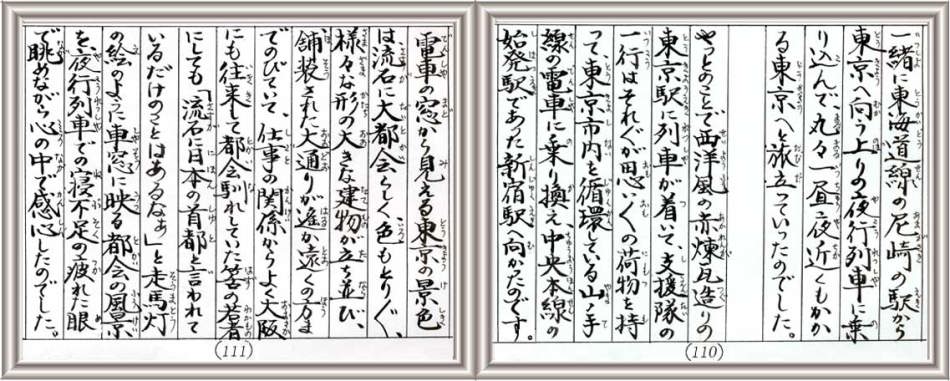 一緒に東海道線の尼崎の駅から
東京へ向う上りの夜行列車に乗
り込んで、丸々一昼夜近くもかか
る東京へと旅立っていったのでした。
やっとのことで西洋風の赤煉瓦造りの
東京駅に列車が着いて、支援隊の
一行はそれぞれが思い〱の荷物を持
って、東京市内を循環している山ノ手
線の電車に乗り換え、中央本線の
始発駅であった新宿駅へ向かったのです。
(110)
電車の窓から見える東京の景色
は流石に大都会らしく、色もとり〲、
様々な形の大きな建物が立ち並び、
舗装された大通りが遙か遠くの方ま
でのびていて、仕事の関係からよく大阪
にも往来して都会馴れしていた筈の若者
にしても「流石に日本の首都と言われて
いるだけのことはあるなぁ」と走馬灯
の絵のように車窓に映る都会の風景
を、夜行列車での寝不足の疲れた眼
で眺めながら心の中で感心したのでした。
(111)